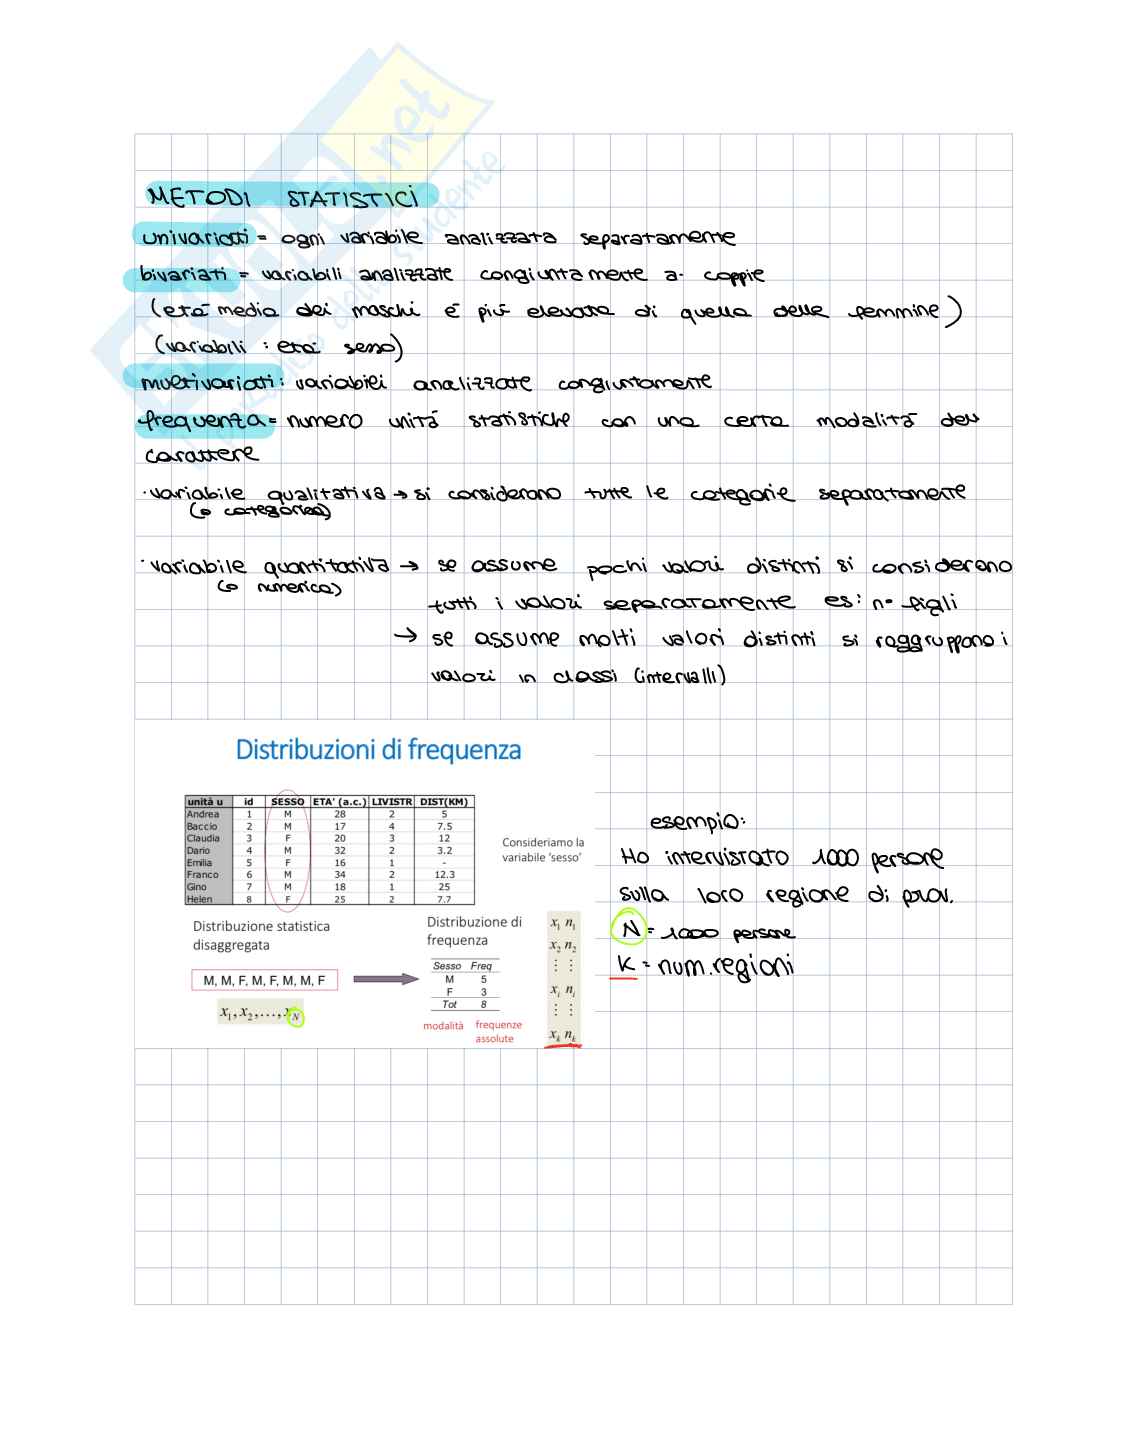 METODI STATISTICI
univariati = ogni variabile analizzata separatamente
bivariati = variabili analizzate congiuntamente a coppie
(età media dei maschi è più elevata di quella delle femmine)
(variabili : età sesso)
multivariati: variabili analizzate congiuntamente
frequenza = numero unità statistiche con una certa modalità del
carattere
· variabile qualitativa → si considerano tutte le categorie separatamente
(o categorica)
· variabile quantitativa → se assume pochi valori distinti si considerano
(o numerica)
tutti i valori separatamente es: n° figli
→ se assume molti valori distinti si raggruppano i
valori in classi (intervalli)
Distribuzioni di frequenza
unità u id SESSO ETA' (a.c.) LIVISTR DIST(KM)
Andrea 1 M 28 2 5
Baccio 2 M 17 4 7.5
Claudia 3 F 20 3 12
Dario 4 M 32 2 3.2
Emilia 5 F 16 1 -
Franco 6 M 34 2 12.3
Gino 7 M 18 1 25
Helen 8 F 25 2 7.7
Consideriamo la
variabile 'sesso'
Distribuzione statistica
disaggregata
M, M, F, M, F, M, M, F
x₁, x₂, ..., x_N
Distribuzione di
frequenza
Sesso Freq
M 5
F 3
Tot 8
modalità frequenze
assolute
x₁ n₁
x₂ n₂
⋮ ⋮
xᵢ nᵢ
⋮ ⋮
x_k n_k
esempio:
Ho intervistato 1000 persone
sulla loro regione di prov.
N = 1000 persone
K = num. regioni